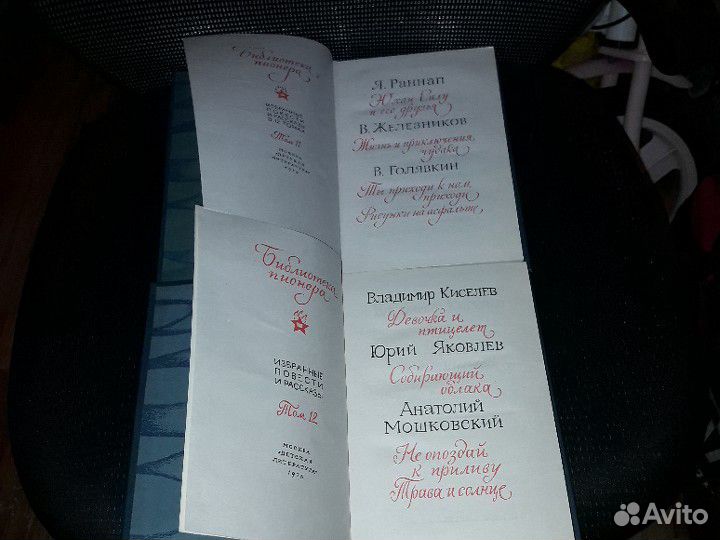 Библиотека
пионера
ИЗБРАННЫЕ
ПОВЕСТИ
И РАССКАЗЫ
Том 11
МОСКВА
"ДЕТСКАЯ
ЛИТЕРАТУРА"
Я. Раннап
Юхан Силу
и его друзья
В. Железников
Жизнь и приключения
чудака
В. Голявкин
Ты приходи к нам,
приходи
Рисунки на асфальте
Библиотека
пионера
ИЗБРАННЫЕ
ПОВЕСТИ
И РАССКАЗЫ
Том 12
МОСКВА
"ДЕТСКАЯ
ЛИТЕРАТУРА"
Владимир Киселев
Девочка и
птицелет
Юрий Яковлев
Собирающий
облака
Анатолий
Мошковский
Не опоздай
к приливу
Трава и солнце
Avito